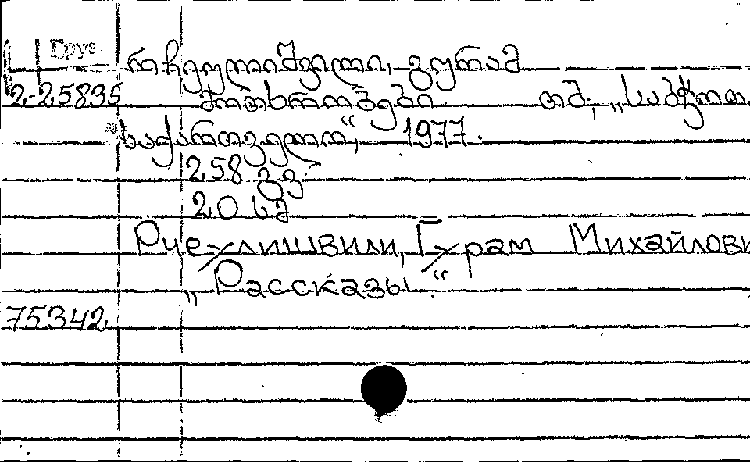 Груз
რჩეულიშვილი, გურამ
2-25895 მოთხრობები. თბ., „საბჭოთა
საქართველო“, 1977.
258 გვ.
20 სმ
Рчеулишвили, Гурам Михайлови
„Рассказы.“
75342